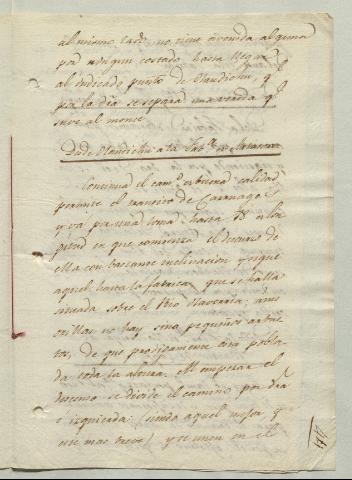 al mismo lado no tiene avenida alguna
por ningun costado hasta llegar
al indicado punto de Olandichu, q.e
por la dra se separa una vereda q.e
sube al monte.
Desde Olandichu a la Fab.ca de
Continua el cam.o de buena calidad
permite el transito de Carruage
y va por una loma hasta
en que comienza el descenso de
ella con bastante inclinacion y sigue
aquel hasta la fabrica que se halla
situada sobre el Rio; a ambas
orillas no hay sino pequeños arbus
tos, de que prodigamente está pobla
da toda la altura. Al empezar el
descenso se divide el camino por dra
é izquierda (siendo aquel mejor y
este mas breve) y se unen en el